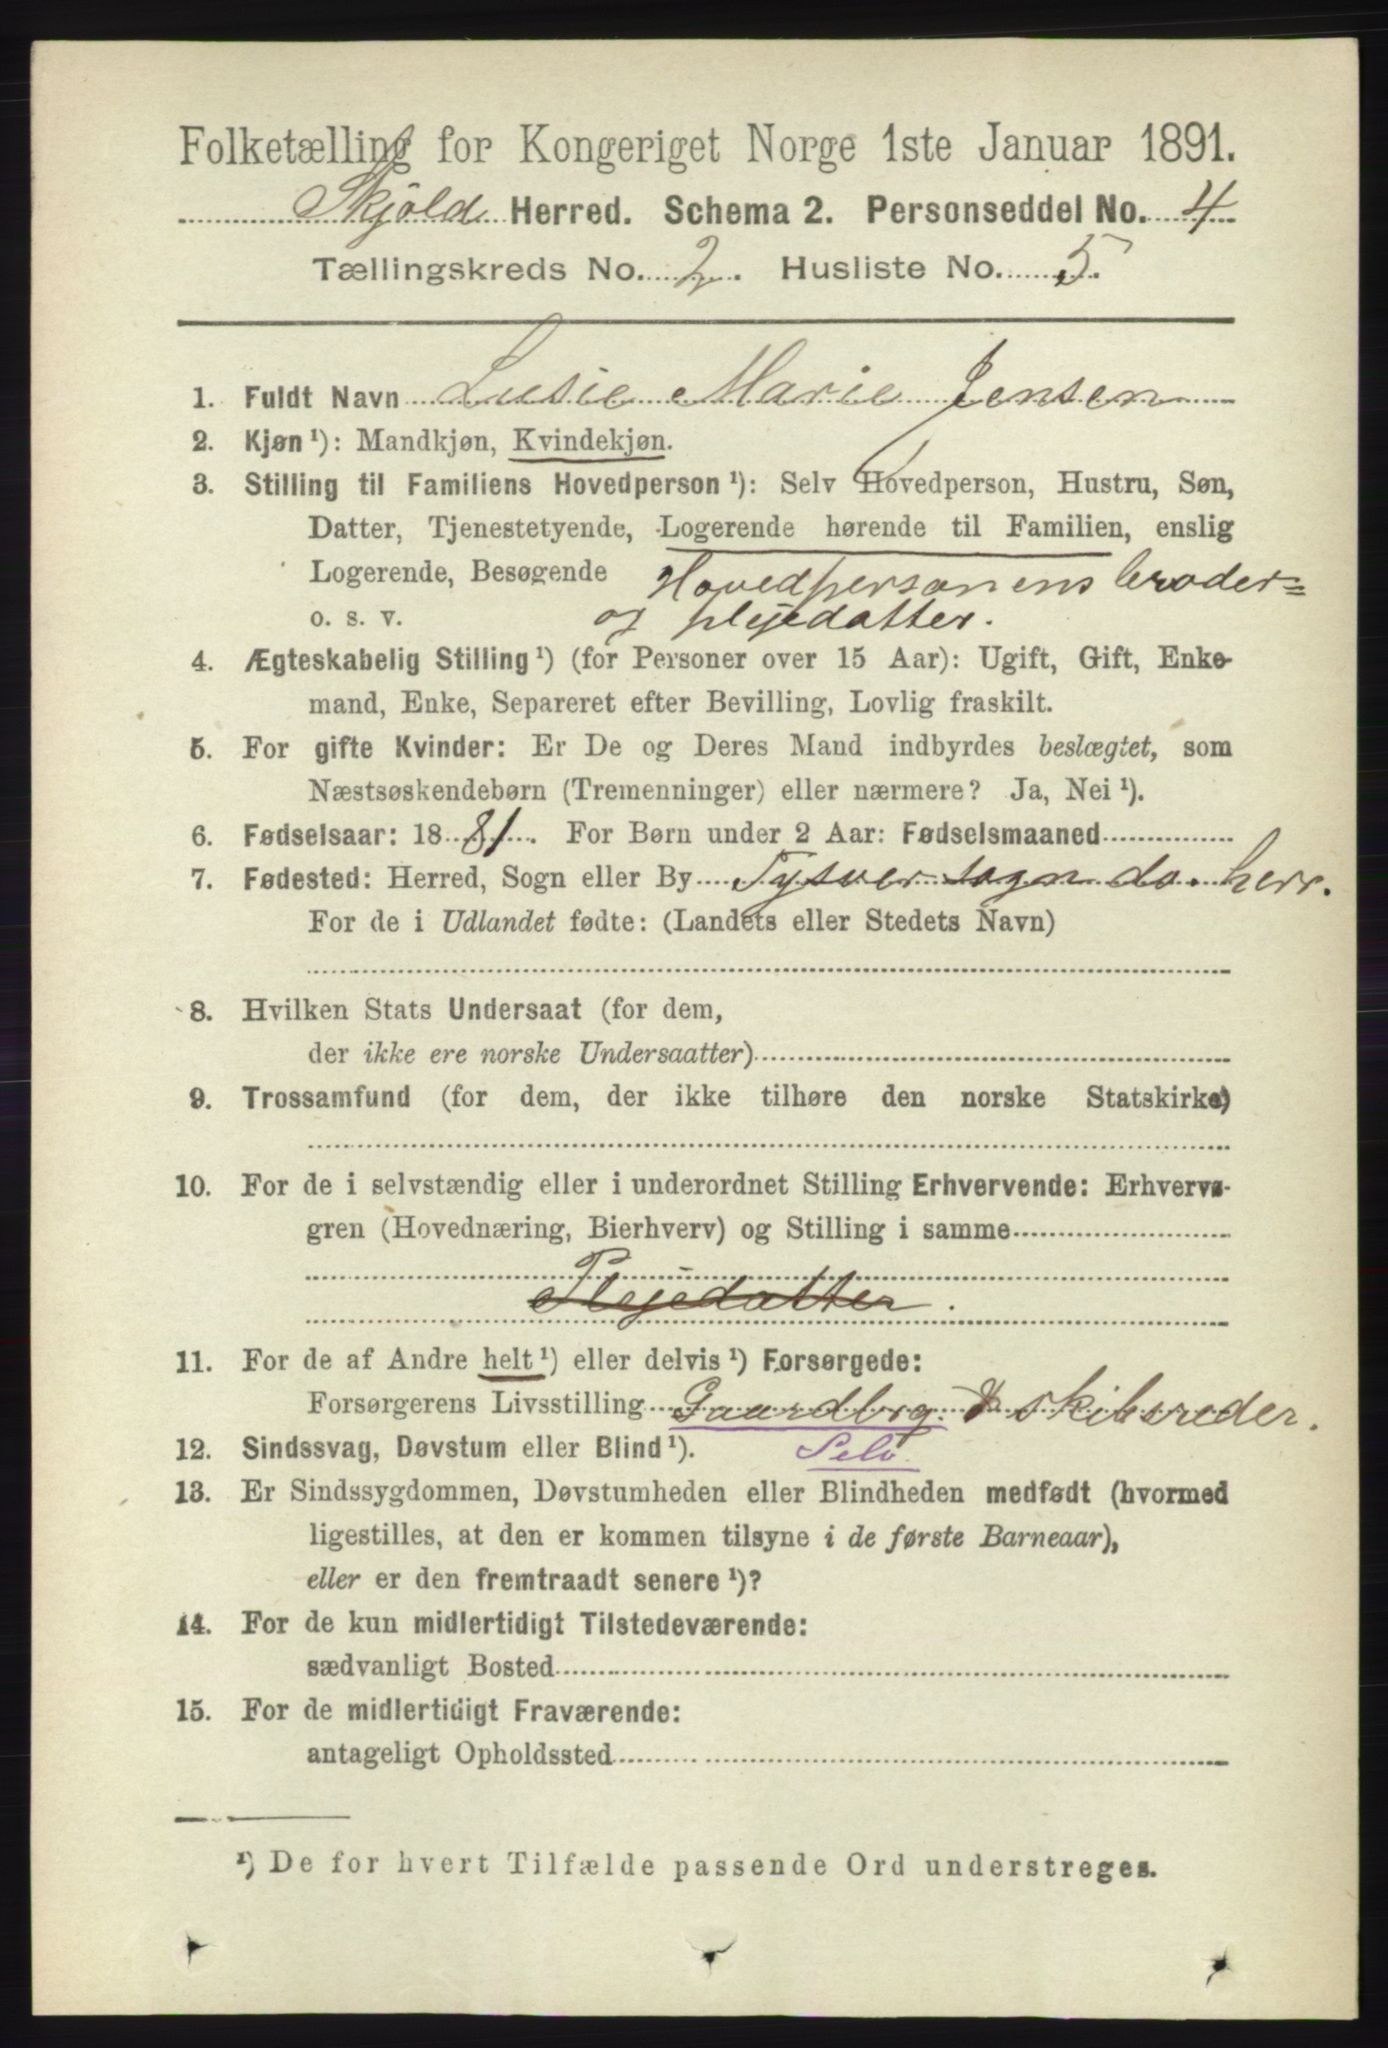 Folketælling for Kongeriget Norge 1ste Januar 1891.
Skjold Herred. Schema 2. Personseddel No. 4
Tællingskreds No. 2. Husliste No. 5.
1. Fuldt Navn Lusie Marie Jensen
2. Kjøn ¹): Mandkjøn, Kvindekjøn.
3. Stilling til Familiens Hovedperson ¹): Selv Hovedperson, Hustru, Søn,
Datter, Tjenestetyende, Logerende hørende til Familien, enslig
Logerende, Besøgende Hovedpersonens broder=
o. s. v. og plejedatter.
4. Ægteskabelig Stilling ¹) (for Personer over 15 Aar): Ugift, Gift, Enke-
mand, Enke, Separeret efter Bevilling, Lovlig fraskilt.
5. For gifte Kvinder: Er De og Deres Mand indbyrdes beslægtet, som
Næstsøskendebørn (Tremenninger) eller nærmere? Ja, Nei ¹).
6. Fødselsaar: 1881. For Børn under 2 Aar: Fødselsmaaned
7. Fødested: Herred, Sogn eller By Tysvær sogn do. herr.
For de i Udlandet fødte: (Landets eller Stedets Navn)
8. Hvilken Stats Undersaat (for dem,
der ikke ere norske Undersaatter)
9. Trossamfund (for dem, der ikke tilhøre den norske Statskirke)
10. For de i selvstændig eller i underordnet Stilling Erhvervende: Erhvervs-
gren (Hovednæring, Bierhverv) og Stilling i samme
Plejedatter.
11. For de af Andre helt ¹) eller delvis ¹) Forsørgede:
Forsørgerens Livsstilling Gaardbrg. & skibsreder.
12. Sindssvag, Døvstum eller Blind ¹). Selv
13. Er Sindssygdommen, Døvstumheden eller Blindheden medfødt (hvormed
ligestilles, at den er kommen tilsyne i de første Barneaar),
eller er den fremtraadt senere ¹)?
14. For de kun midlertidigt Tilstedeværende:
sædvanligt Bosted
15. For de midlertidigt Fraværende:
antageligt Opholdssted
¹) De for hvert Tilfælde passende Ord understreges.